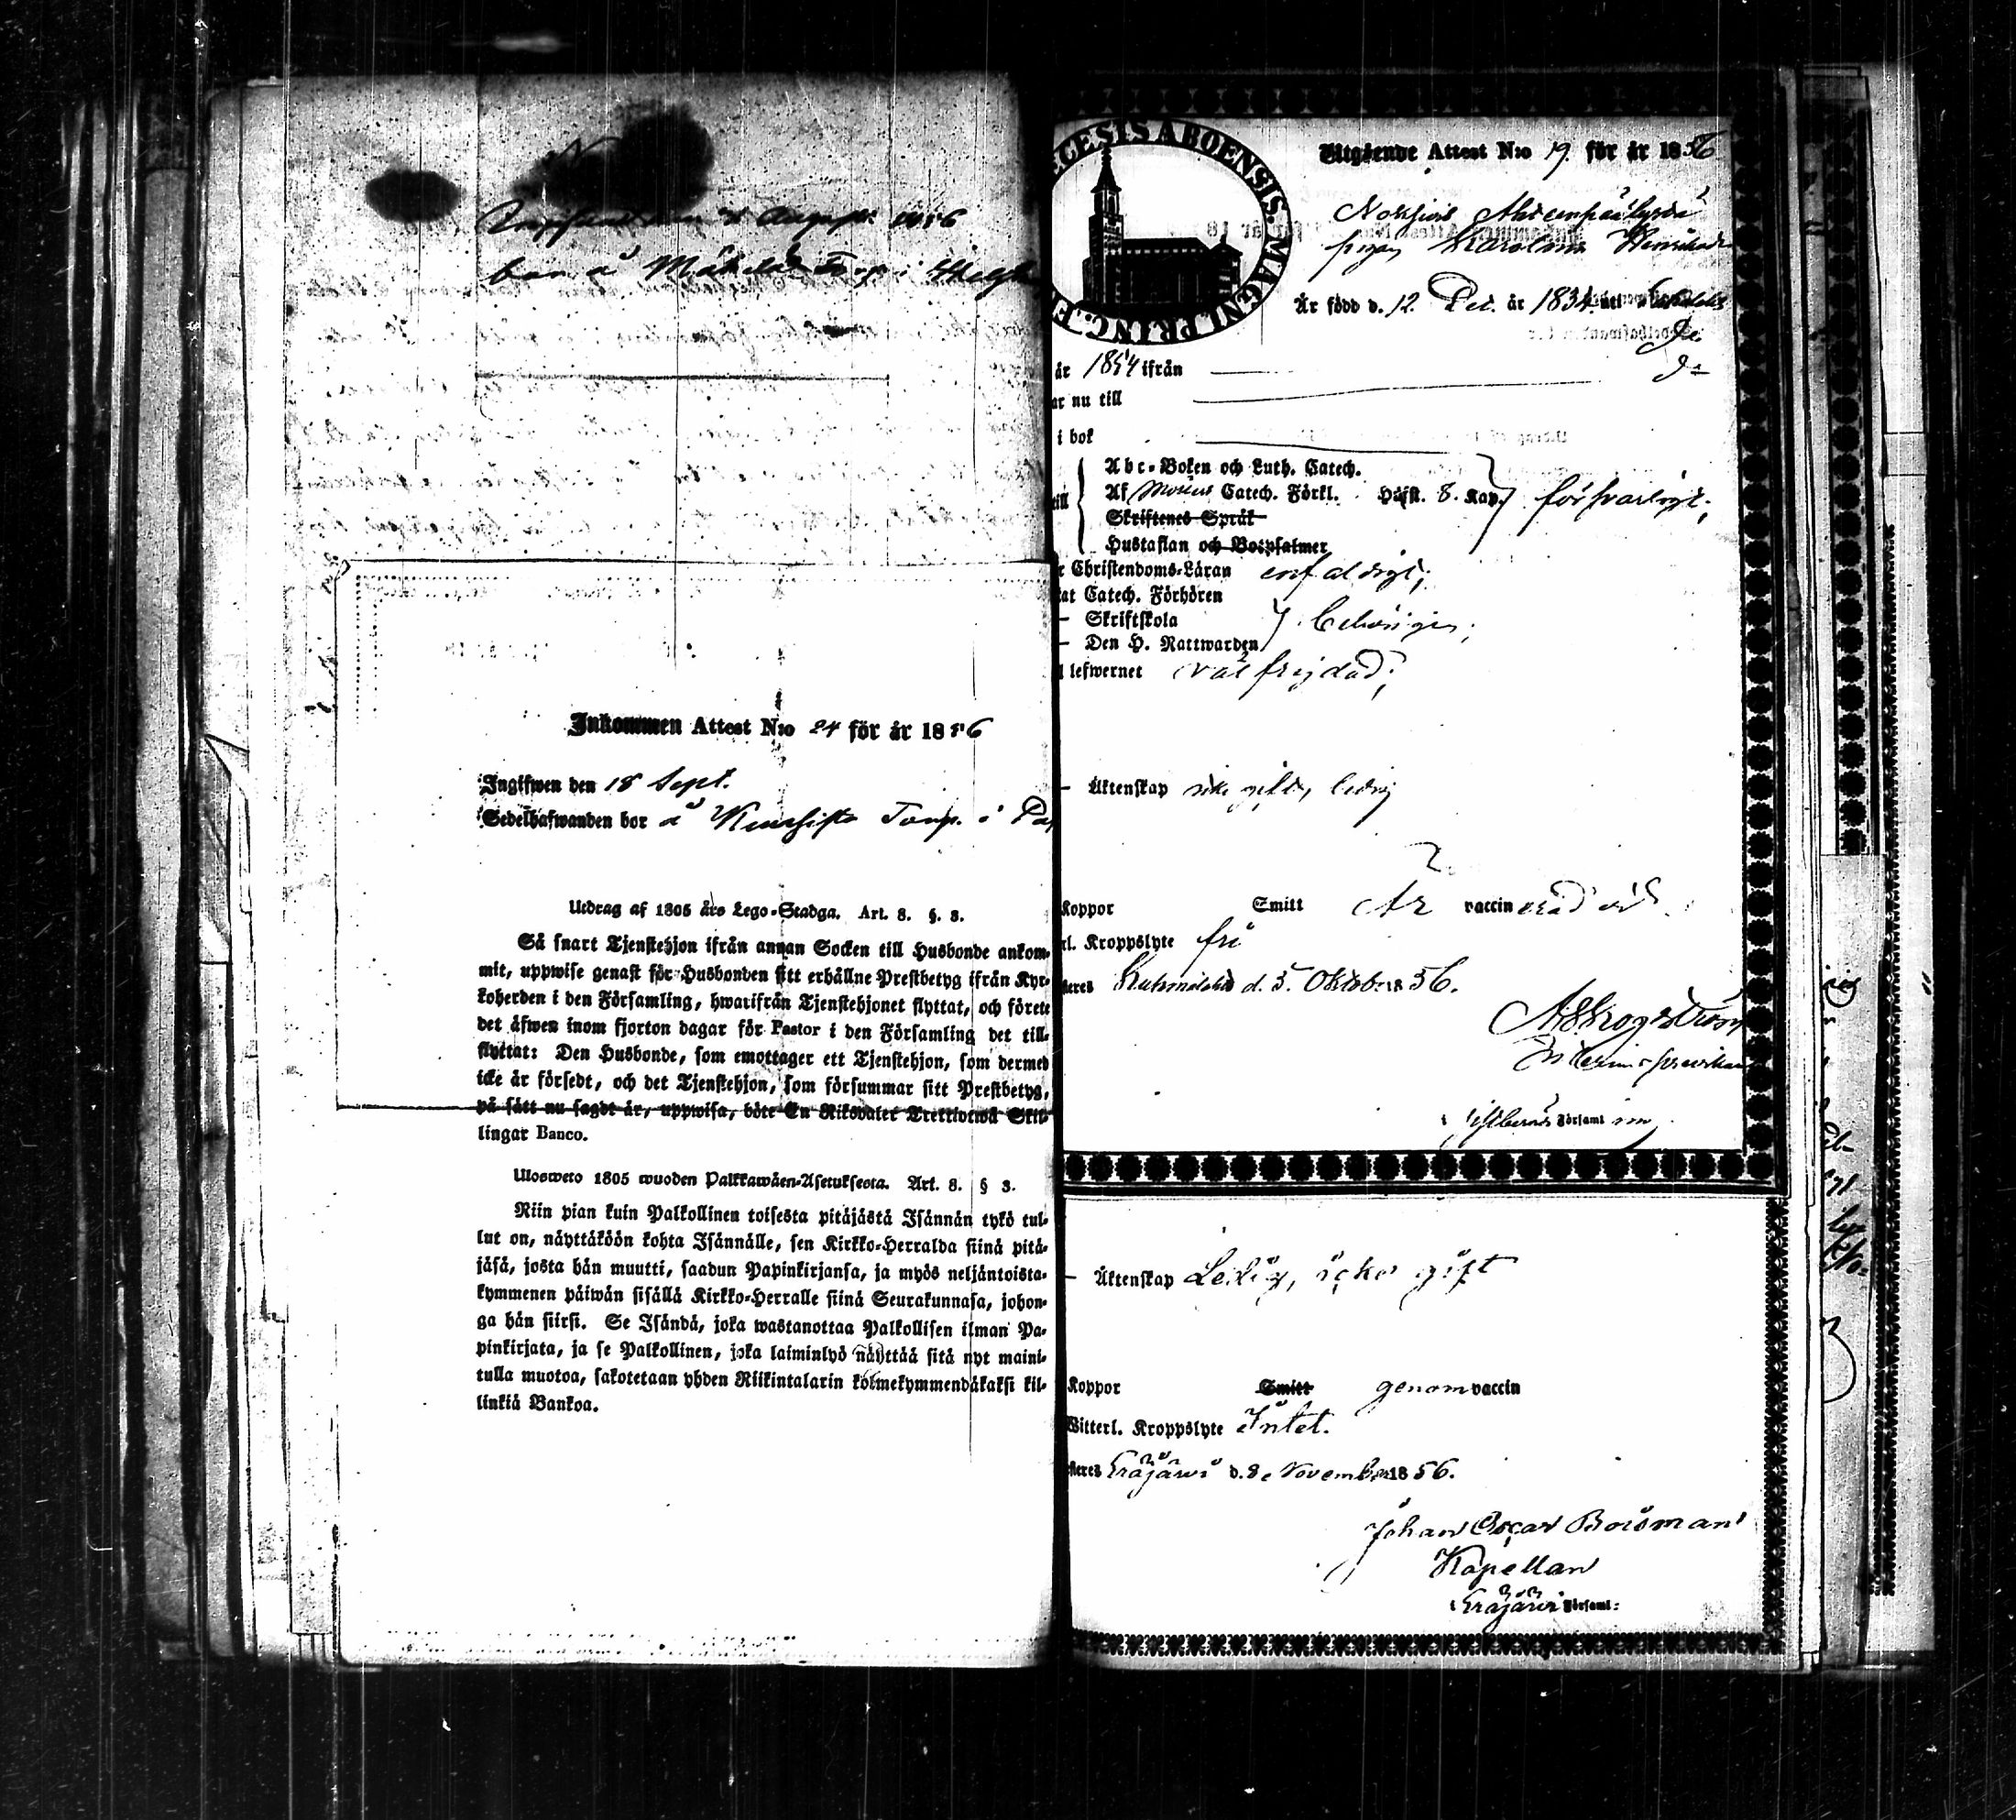 d. August. 1856
bor å Torp i
Inkommen Attest N:o 24 för år 1856
Ingifwen den 18 Sept.
Sedelhafwanden bor å Torp. i
Utdrag af 1805 års Lego-Stadga. Art. 8. §. 3.
Så snart Tjenstehjon ifrån annan Socken till Husbonde ankom-
mit, uppwise genast för Husbonden sitt erhållne Prestbetyg ifrån Kyr-
koherden i den Församling, hwarifrån Tjenstehjonet flyttat, och förete
det äfwen inom fjorton dagar för Pastor i den Församling det till-
flyttat: Den Husbonde, som emottager ett Tjenstehjon, som dermed
icke är försedt, och det Tjenstehjon, som försummar sitt Prestbetyg,
på sätt nu sagdt är, uppwisa, böte En Riksdaler Trettiotwå Skil-
lingar Banco.
Ulosweto 1805 wuoden Palkkawäen-Asetuksesta. Art. 8. § 3.
Niin pian kuin Palkollinen toisesta pitäjästä Isännän tykö tul-
lut on, näyttäköön kohta Isännälle, sen Kirkko-Herralda siinä pitä-
jäsä, josta hän muutti, saadun Papinkirjansa, ja myös neljäntoista-
kymmenen päiwän sisällä Kirkko-Herralle siinä Seurakunnasa, johon-
ga hän siirsi. Se Isändä, joka wastanottaa Palkollisen ilman Pa-
pinkirjata, ja se Palkollinen, joka laiminlyö näyttää sitä nyt maini-
tulla muotoa, sakotetaan yhden Riikintalarin kolmekymmendäkaksi kil-
linkiä Bankoa.
ECESIS ABOENSIS. MAGNI PRINC. F
Utgående Attest N:o 19 för år 1856
pigan Karolina
Är född d. 12 Dec. år 1834
år 1854 ifrån
ar nu till
i bok
Abc-Boken och Luth. Catech.
till Af Catech. Förkl. Höfst. 8. Kap. försvarligt;
Skriftenes Språk
Hustaflan och Botpsalmer
r Christendoms-Läran enfaldigt;
tat Catech. Förhören
– Skriftskola behörigen;
– Den H. Nattwarden
l lefwernet väl frejdad;
– Äktenskap icke gift, ledig
Koppor Smitt Är vaccinerad
rl. Kroppslyte fri
steres d. 5. Oktob. 1856.
Församl
– Äktenskap Ledig, icke gift
Koppor Smitt genom vaccin
Witterl. Kroppslyte Intet.
steres Eräjärvi d. 8. November 1856.
Johan Oscar Boisman
Kapellan
i Eräjärvi Församl: